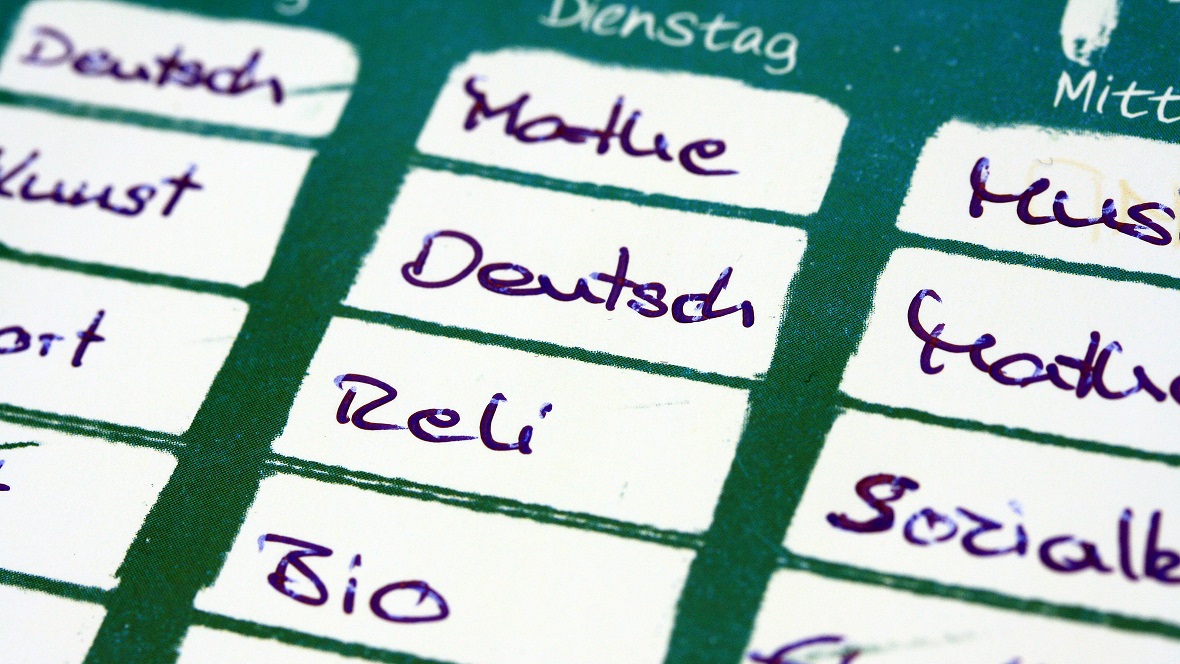 Dienstag
Mitt
Deutsch
Mathe
Musi
Kunst
Deutsch
Mathe
ort
Reli
Sozialk
Bio